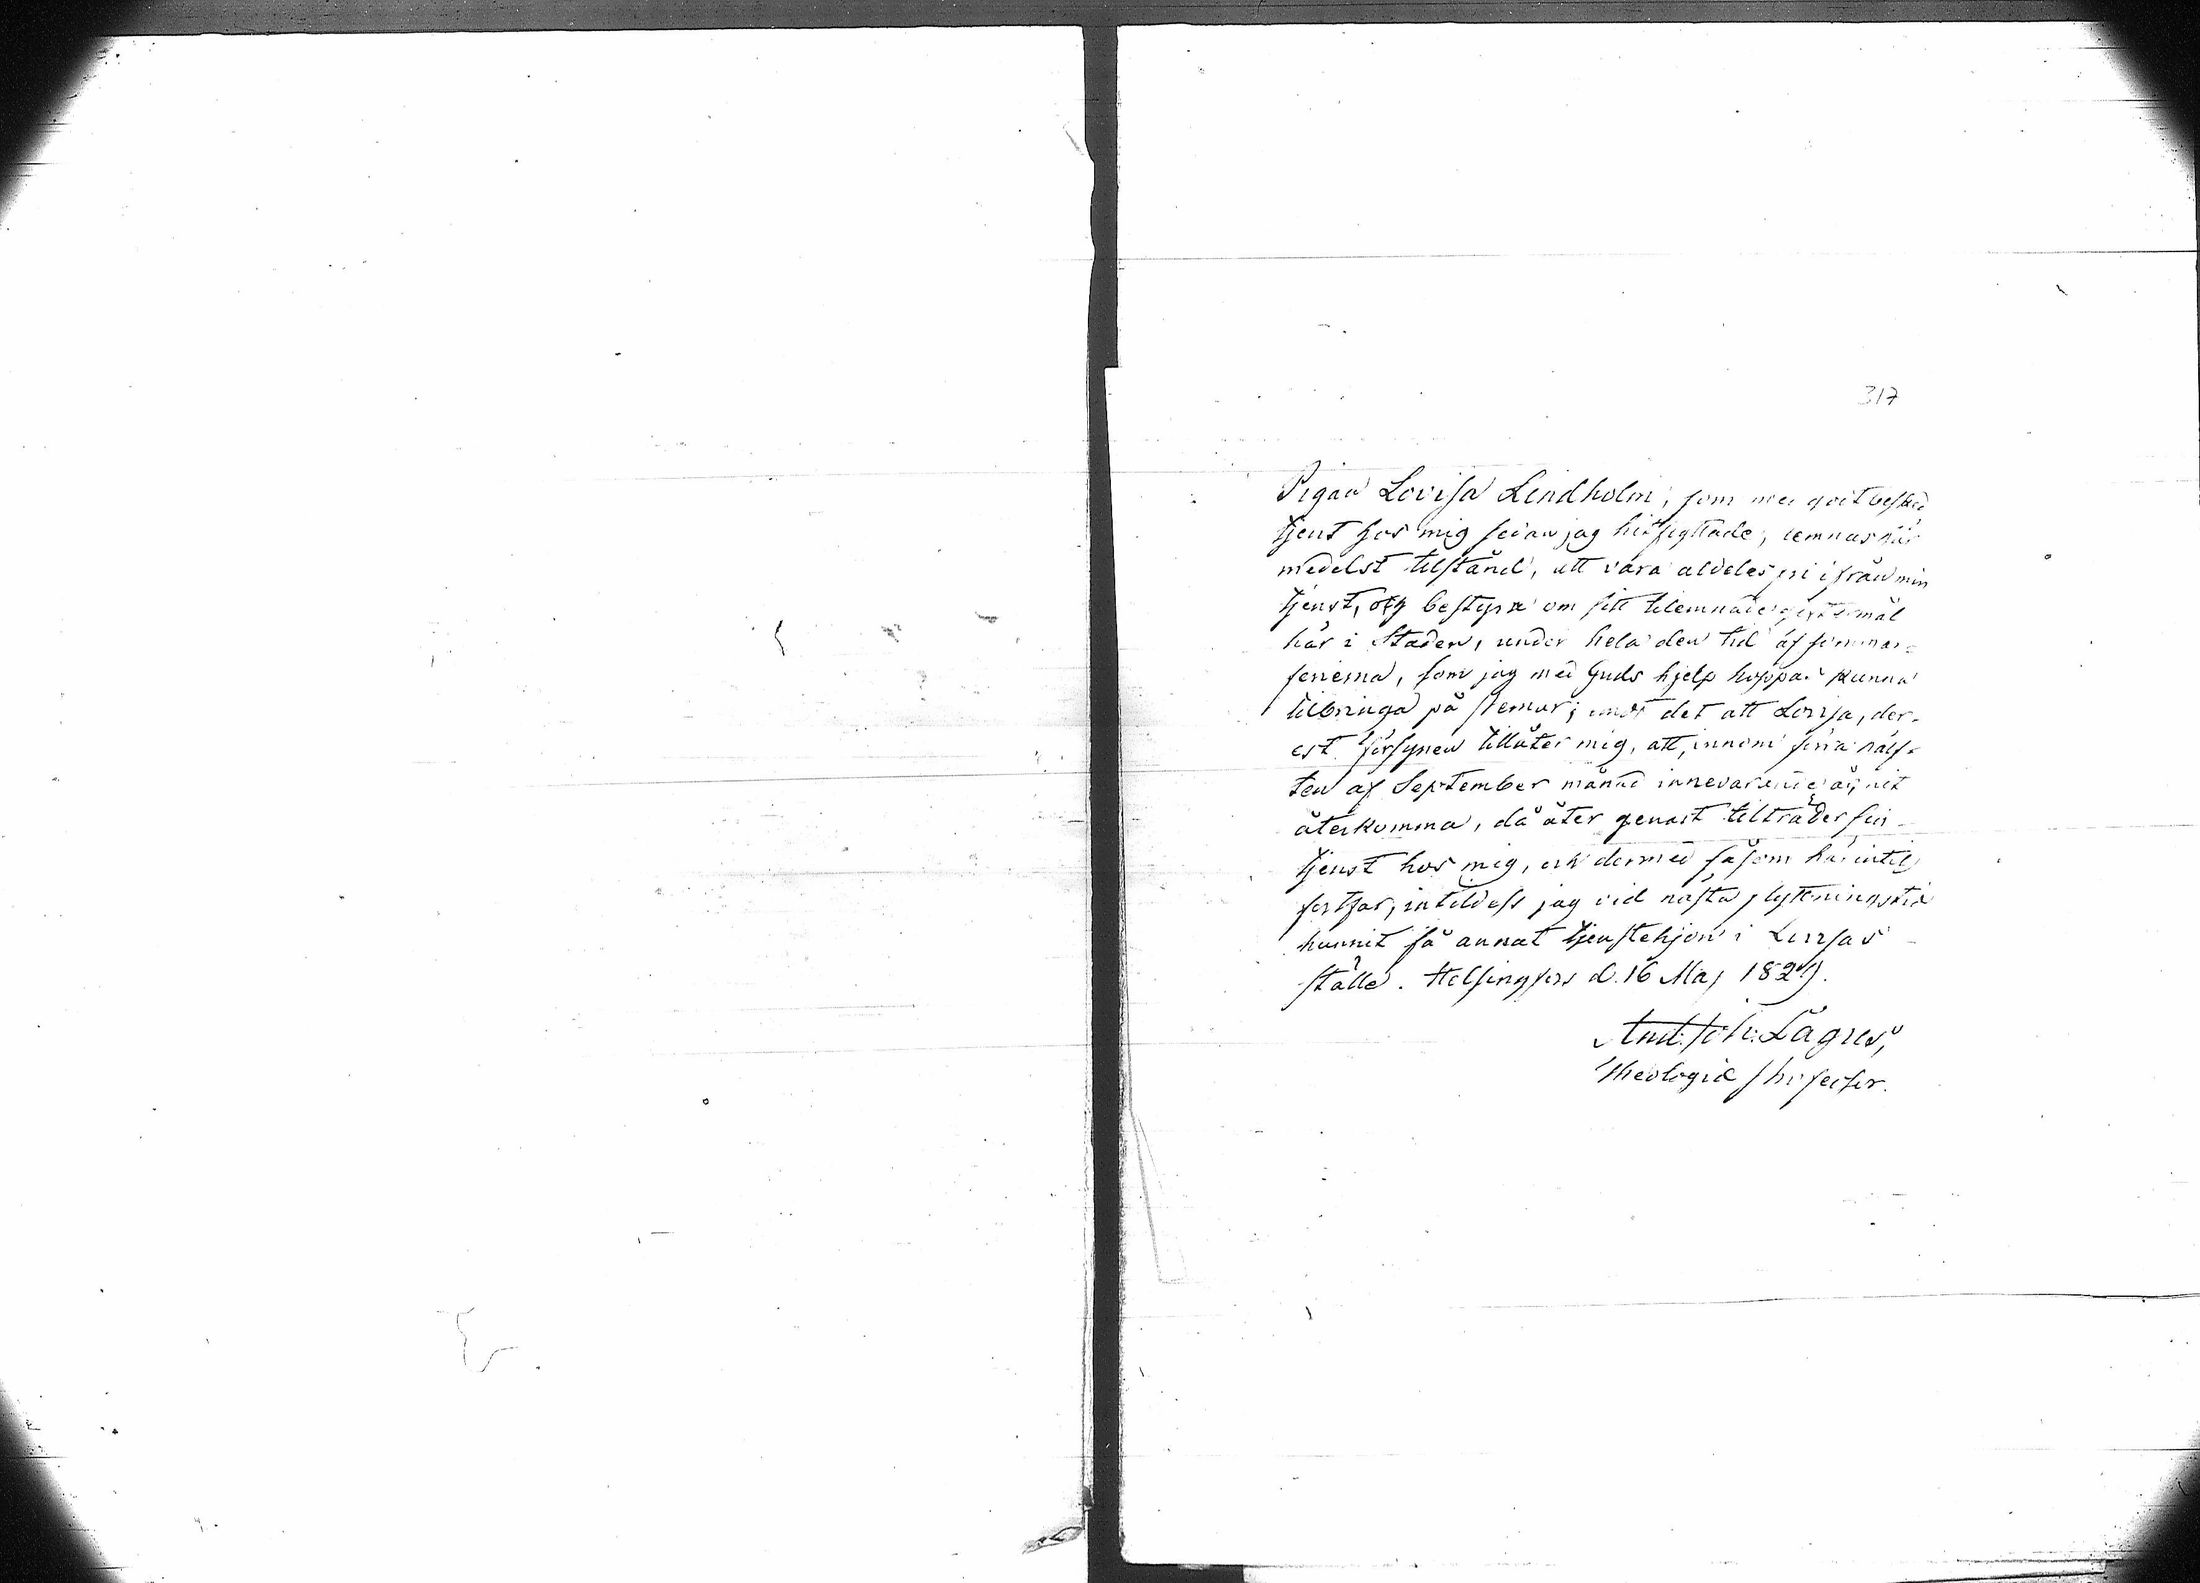 317
Pigan Lovisa Lindholm, som med godt besked
tjent hos mig sedan jag hitflyttade, lemnas här
medelst tilstånd, att vara aldeles fri ifrån min
tjenst, och bestyra om sitt tilernade giftermål
här i Staden, under hela den tid af sommar-
ferierna, som jag med Guds hjelp hoppas kunna
tilbringa på Kemar; mot det att Lovisa, der-
est försynen tillåter mig, att, innom förra hälf-
ten af September månad innevarande år, hit
återkomma, då åter genast tilträder sin
tjenst hos mig, och dermed såsom härintil
fortfar, intildess jag vid nästa flyttningstid
hunnit få annat tjenstehjon i Lovisas
ställe. Helsingfors d. 16 Maj 1829.
And: Joh: Lagus,
Theologiæ Professor.